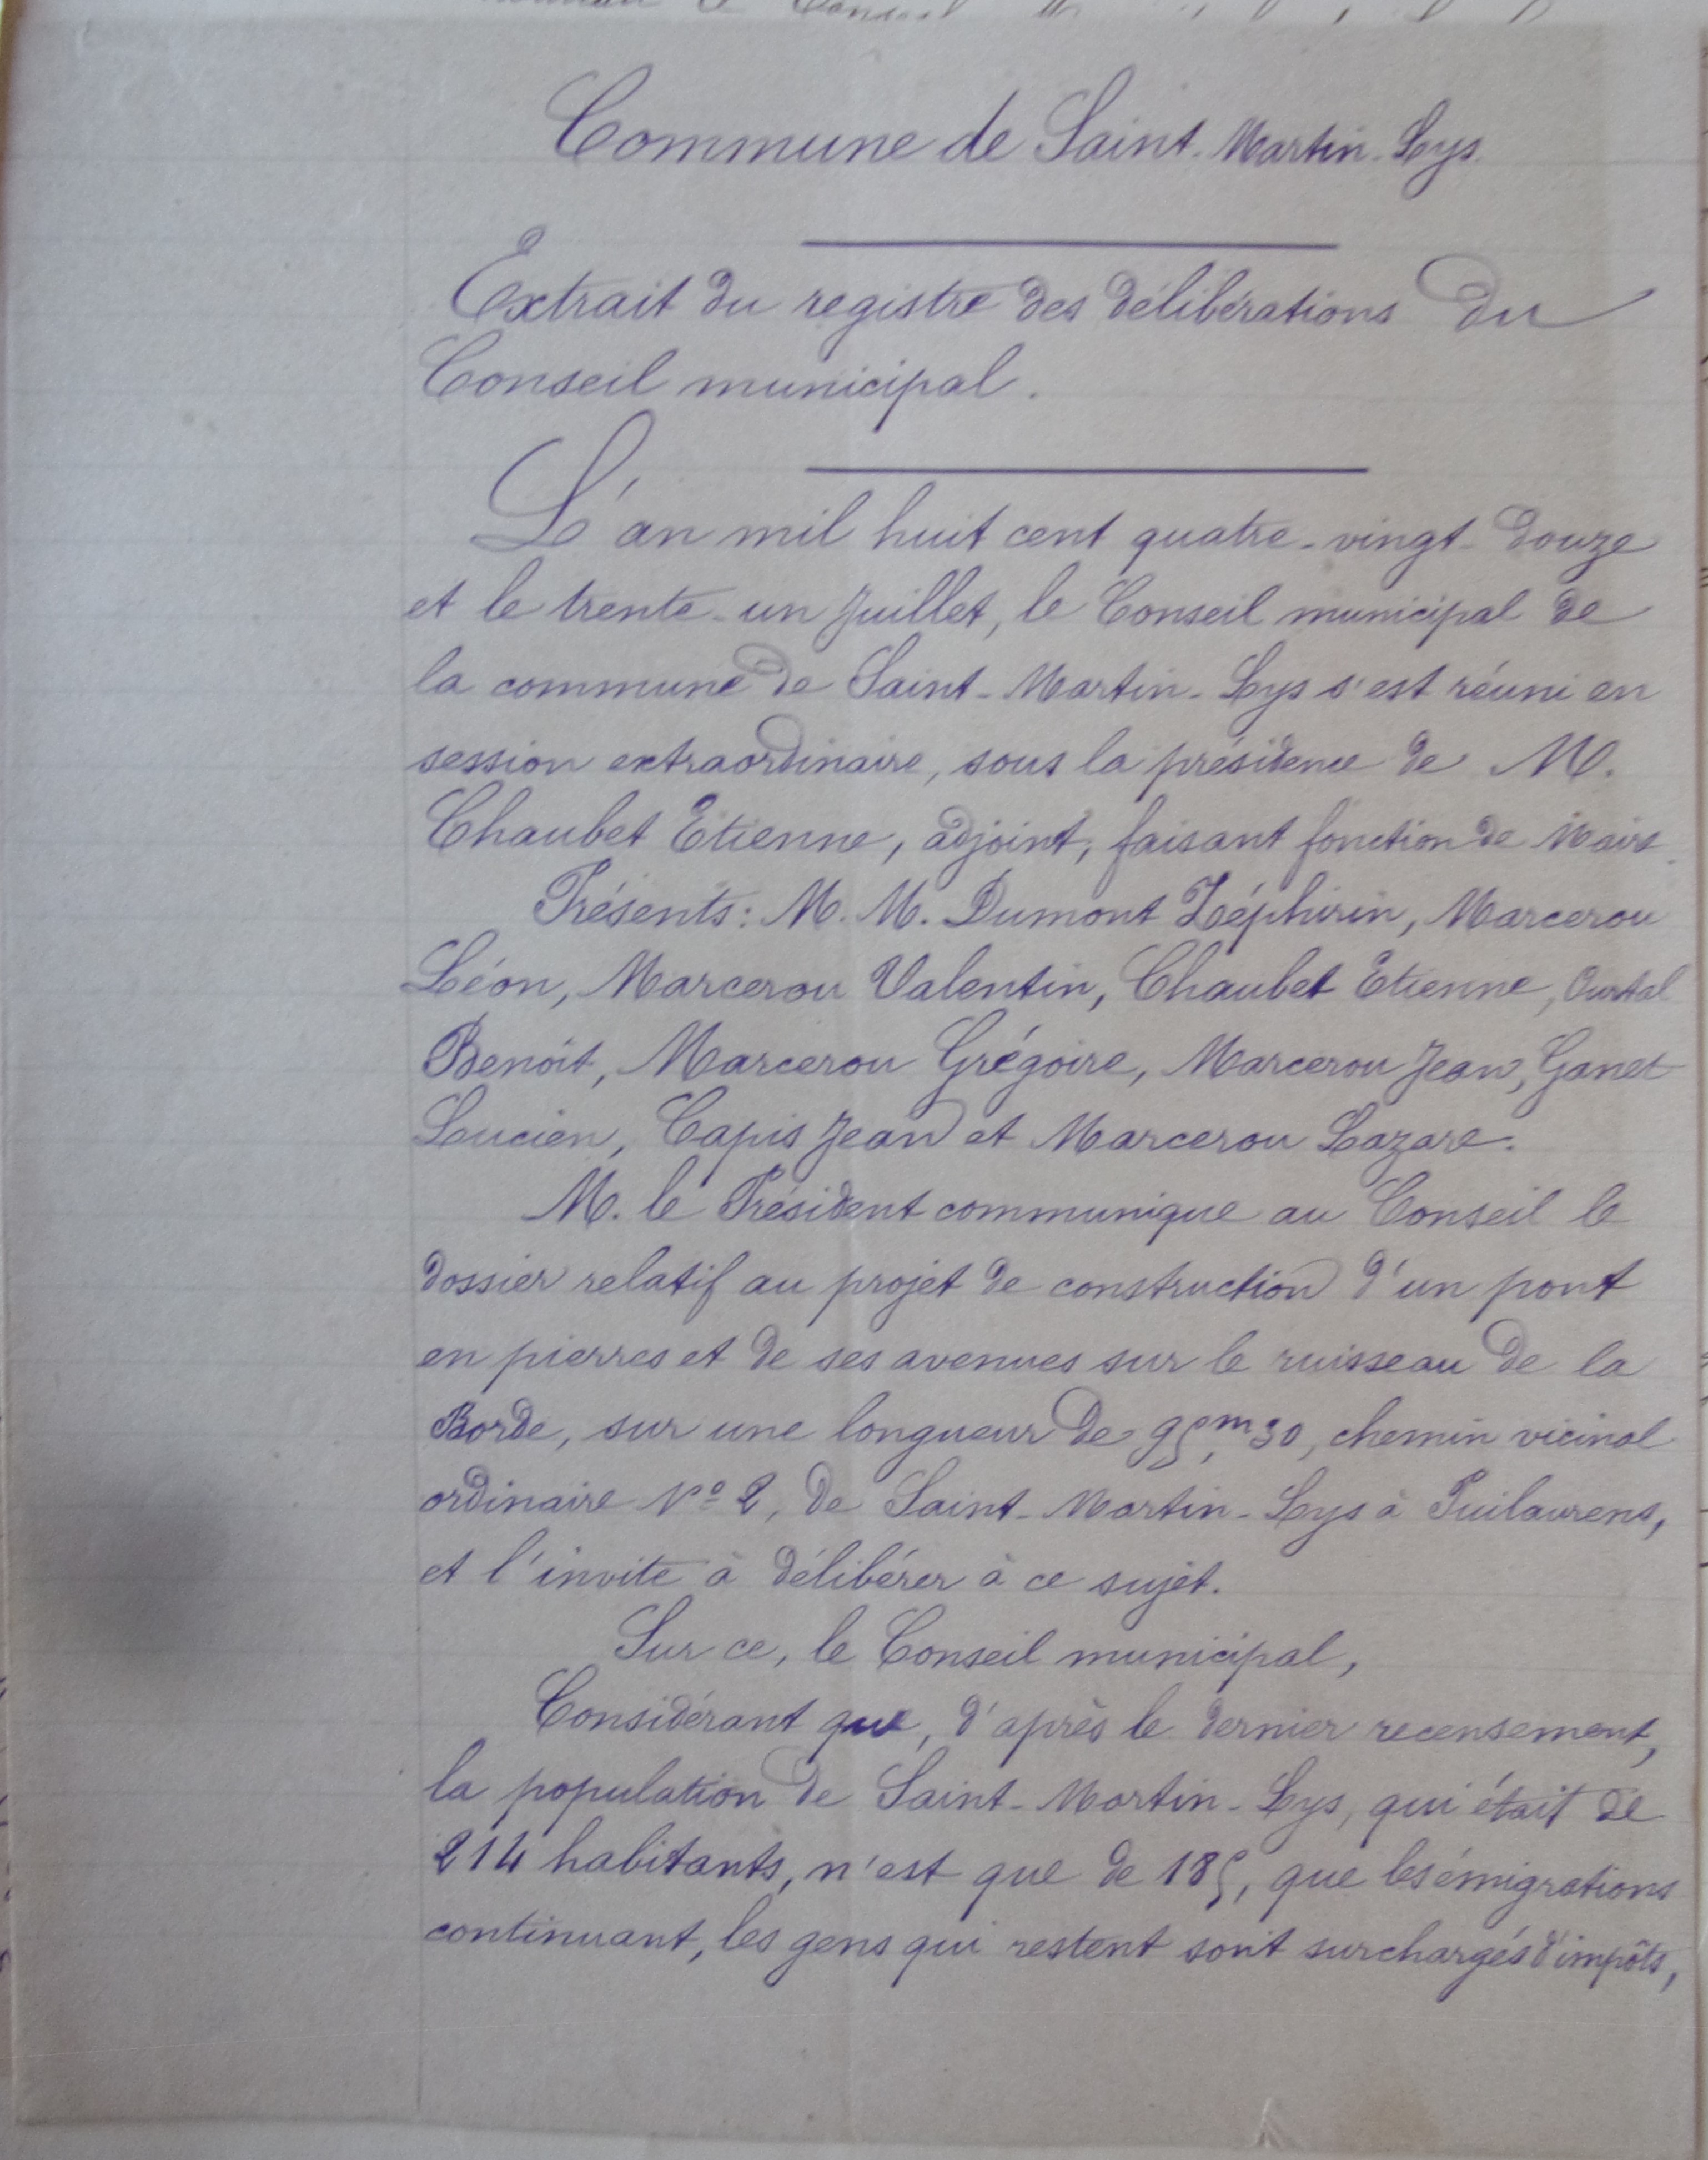 Commune de Saint-Martin-Lys
Extrait du registre des délibérations du
Conseil municipal.
L'an mil huit cent quatre-vingt-douze
et le trente-un Juillet, le Conseil municipal de
la commune de Saint-Martin-Lys s'est réuni en
session extraordinaire, sous la présidence de M.
Chaubet Etienne, adjoint, faisant fonction de Maire.
Présents: M. M. Dumont Zéphirin, Marcerou
Léon, Marcerou Valentin, Chaubet Etienne, Ourtal
Benoît, Marcerou Grégoire, Marcerou Jean, Ganet
Lucien, Capis Jean et Marcerou Lazare.
M. le Président communique au Conseil le
dossier relatif au projet de construction d'un pont
en pierres et de ses avenues sur le ruisseau de la
Borde, sur une longueur de 95,m30, chemin vicinal
ordinaire Nº 2, de Saint-Martin-Lys à Puilaurens,
et l'invite à délibérer à ce sujet.
Sur ce, le Conseil municipal,
Considérant que, d'après le dernier recensement,
la population de Saint-Martin-Lys, qui était de
214 habitants, n'est que de 185, que les émigrations
continuant, les gens qui restent sont surchargés d'impôts,